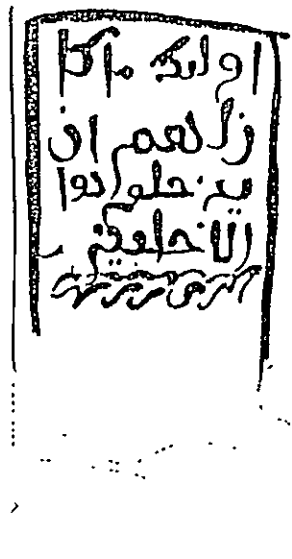 اولىك ما كا
ن لهم ان
يدخلوها
الا خايفين